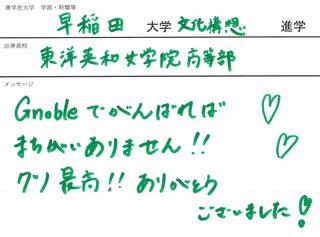 進学先大学 学部・科類等
早稲田 大学 文化構想 進学
出身高校
東洋英和女学院高等部
メッセージ
Gnobleでがんばれば♡
まちがいありません!! ♡
グノ最高!! ありがとう
ございました!